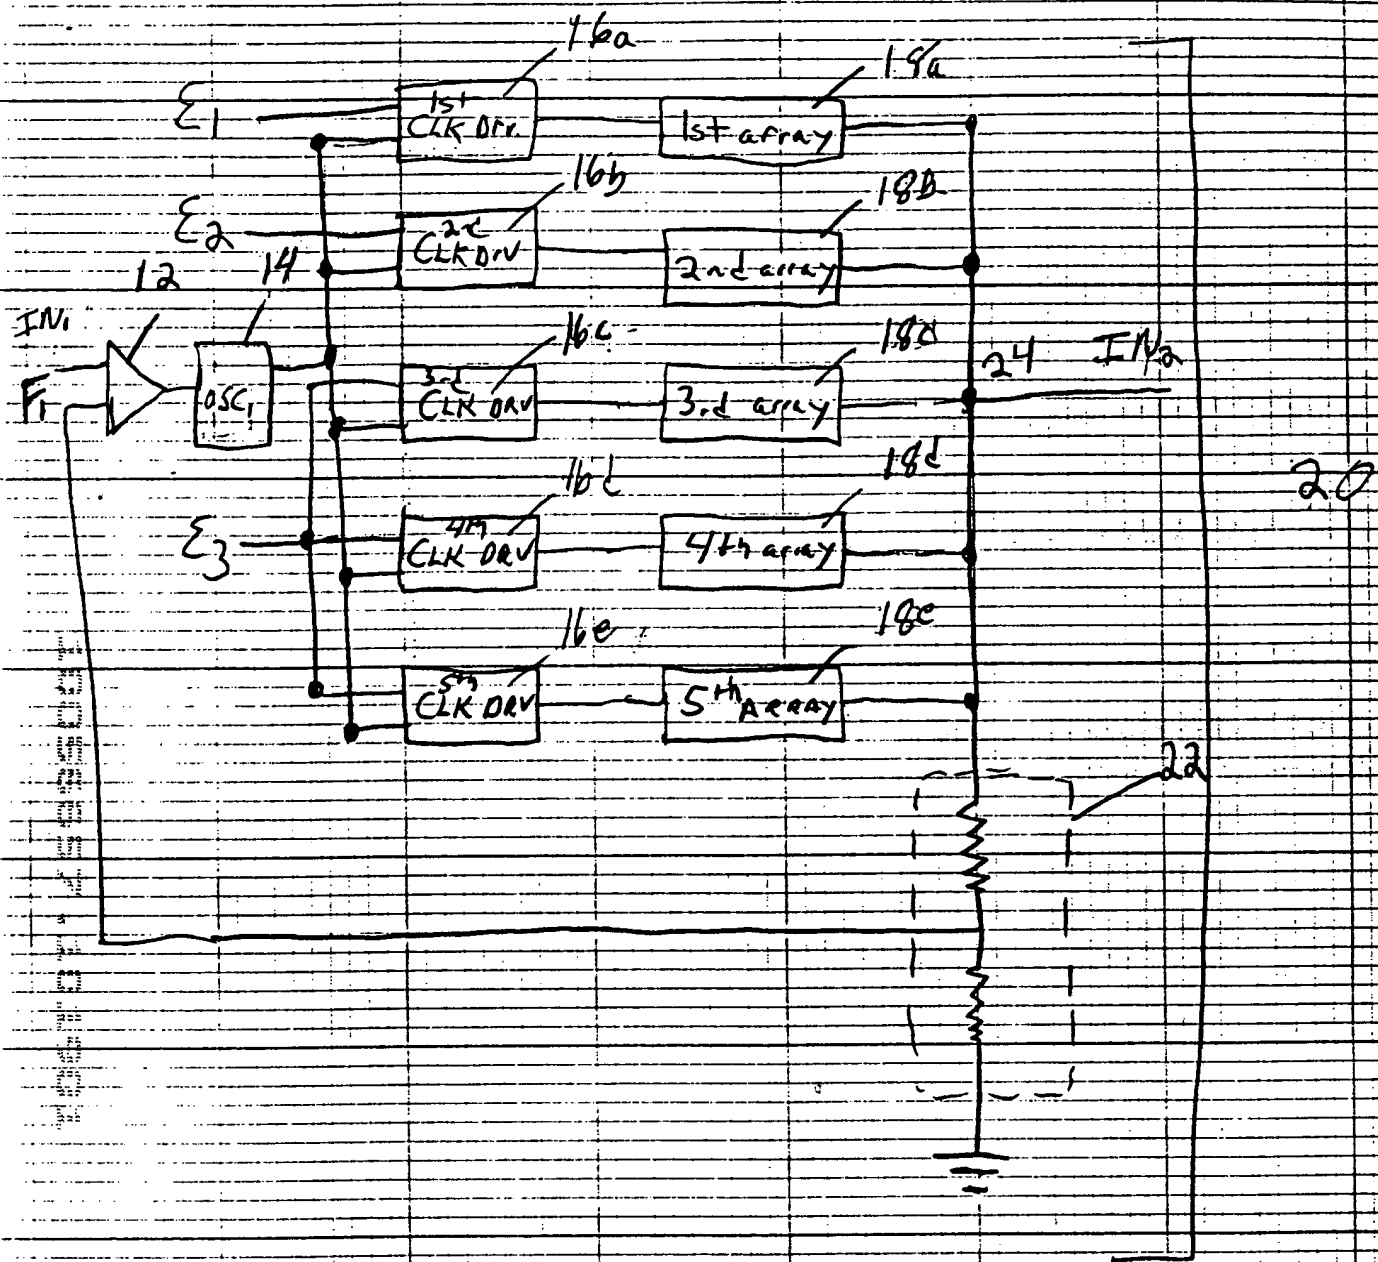 16a
18a
Ɛ1
1st
CLK Drv.
1st array
16b
18B
Ɛ2
2d
CLK Drv
2nd array
12
14
IN1
16c
24
IN2
F1
OSC1
3rd
CLK DRV
3rd array
18d
20
Ɛ3
16d
4th
CLK DRV
4th array
16e
18e
5th
CLK DRV
5th ARRAY
22